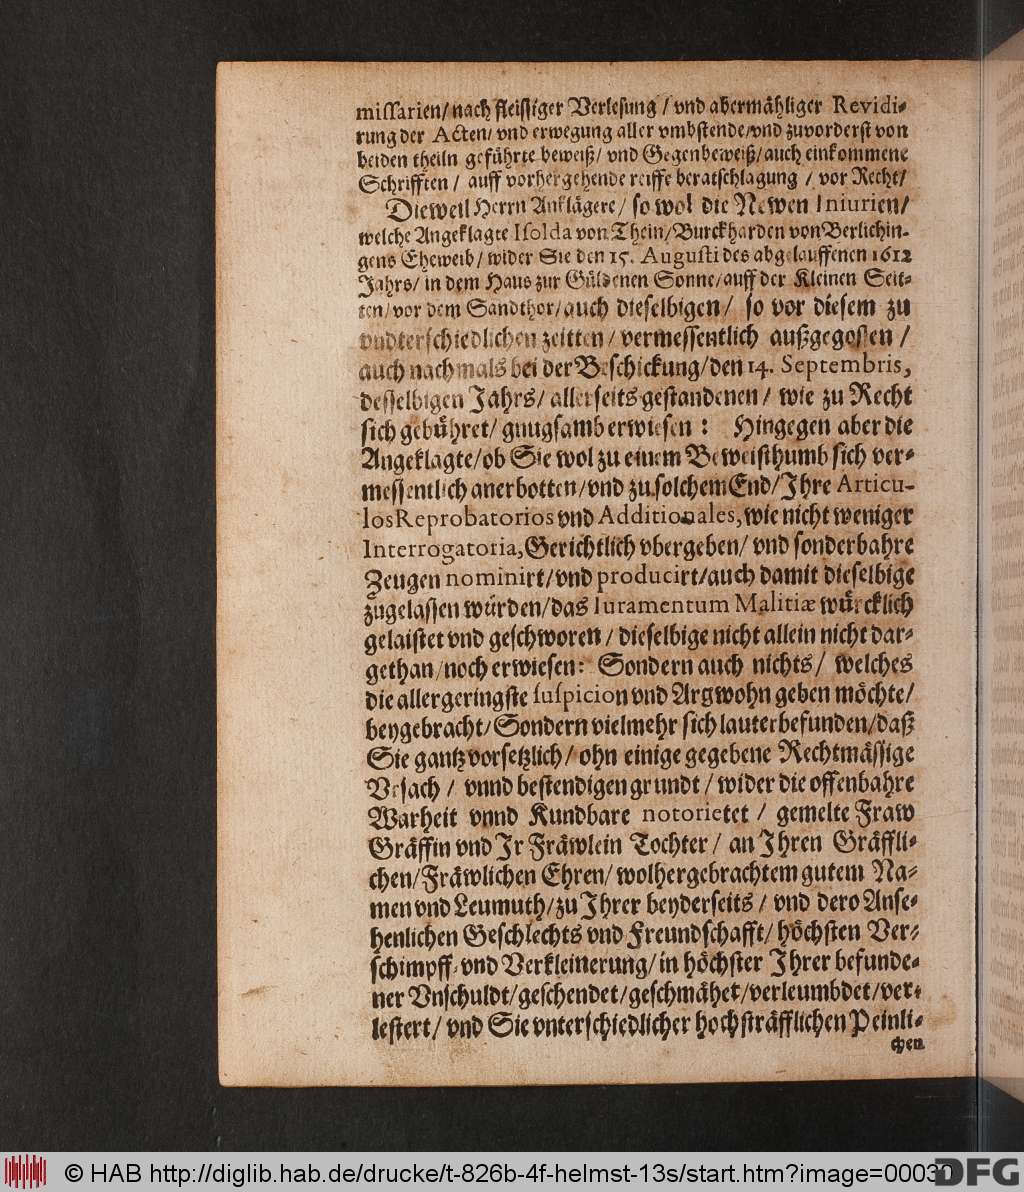 missarien/ nach fleissiger Verlesung / vnd abermähliger Revidi-
rung der Acten/ vnd erwegung aller vmbstende/vnd zuvorderst von
beiden theiln geführte beweiß/ vnd Gegenbeweiß/ auch einkommene
Schrifften / auff vorhergehende reiffe beratschlagung / vor Recht/
Dieweil Herrn Anklägere/ so wol die Newen Iniurien/
welche Angeklagte Isolda von Thein/Burckharden von Berlichin-
gens Eheweib/ wider Sie den 15. Augusti des abgelauffenen 1612
Jahrs/ in dem Haus zur Güldenen Sonne/auff der Kleinen Seit-
ten/ vor dem Sandthor/auch dieselbigen/ so vor diesem zu
vndterschiedlichen zeitten/ vermessentlich außgegossen /
auch nachmals bei der Beschickung/den 14. Septembris,
desselbigen Jahrs/ allerseits gestandenen/ wie zu Recht
sich gebühret/ gnugsamb erwiesen : Hingegen aber die
Angeklagte/ob Sie wol zu einem Beweisthumb sich ver-
messentlich anerbotten/vnd zu solchem End/Jhre Articu-
los Reprobatorios vnd Additionales, wie nicht weniger
Interrogatoria, Gerichtlich vbergeben/ vnd sonderbahre
Zeugen nominirt/vnd producirt/auch damit dieselbige
zugelassen würden/das Iuramentum Malitiæ würcklich
gelaistet vnd geschworen / dieselbige nicht allein nicht dar-
gethan/noch erwiesen: Sondern auch nichts/ welches
die allergeringste suspicion vnd Argwohn geben möchte/
beygebracht/Sondern vielmehr sich lauter befunden/daß
Sie gantz vorsetzlich/ ohn einige gegebene Rechtmässige
Vrsach / vnnd bestendigen grundt / wider die offenbahre
Warheit vnnd Kundbare notorietet / gemelte Fraw
Gräffin vnd Jr Fräwlein Tochter/ an Jhren Gräffli-
chen/Fräwlichen Ehren/ wolhergebrachtem gutem Na-
men vnd Leumuth/zu Jhrer beyderseits / vnd dero Anse-
henlichen Geschlechts vnd Freundschafft/ höchsten Ver-
schimpff- vnd Verkleinerung/in höchster Jhrer befunde-
ner Vnschuldt/geschendet/geschmähet/verleumbdet/ver-
lestert/ vnd Sie vnterschiedlicher hochsträfflichen Peinli-
chen
© HAB http://diglib.hab.de/drucke/t-826b-4f-helmst-13s/start.htm?image=00030
DFG